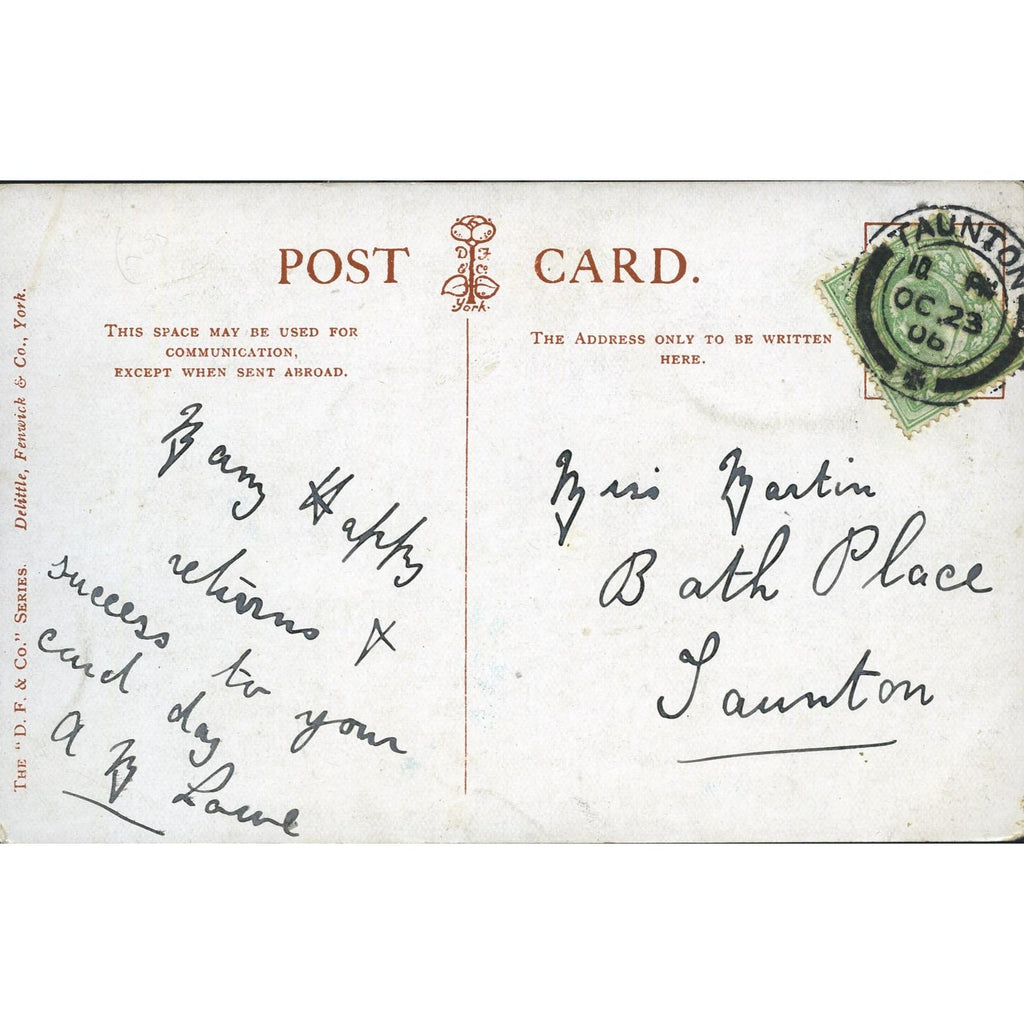 POST CARD.
D. F. & Co. York.
THIS SPACE MAY BE USED FOR
COMMUNICATION,
EXCEPT WHEN SENT ABROAD.
THE ADDRESS ONLY TO BE WRITTEN
HERE.
TAUNTON
10 PM
OC 23
06
THE "D. F. & Co." SERIES. Delittle, Fenwick & Co., York.
Many Happy
returns &
success to your
card day
A M Lowe
Miss Martin
Bath Place
Taunton